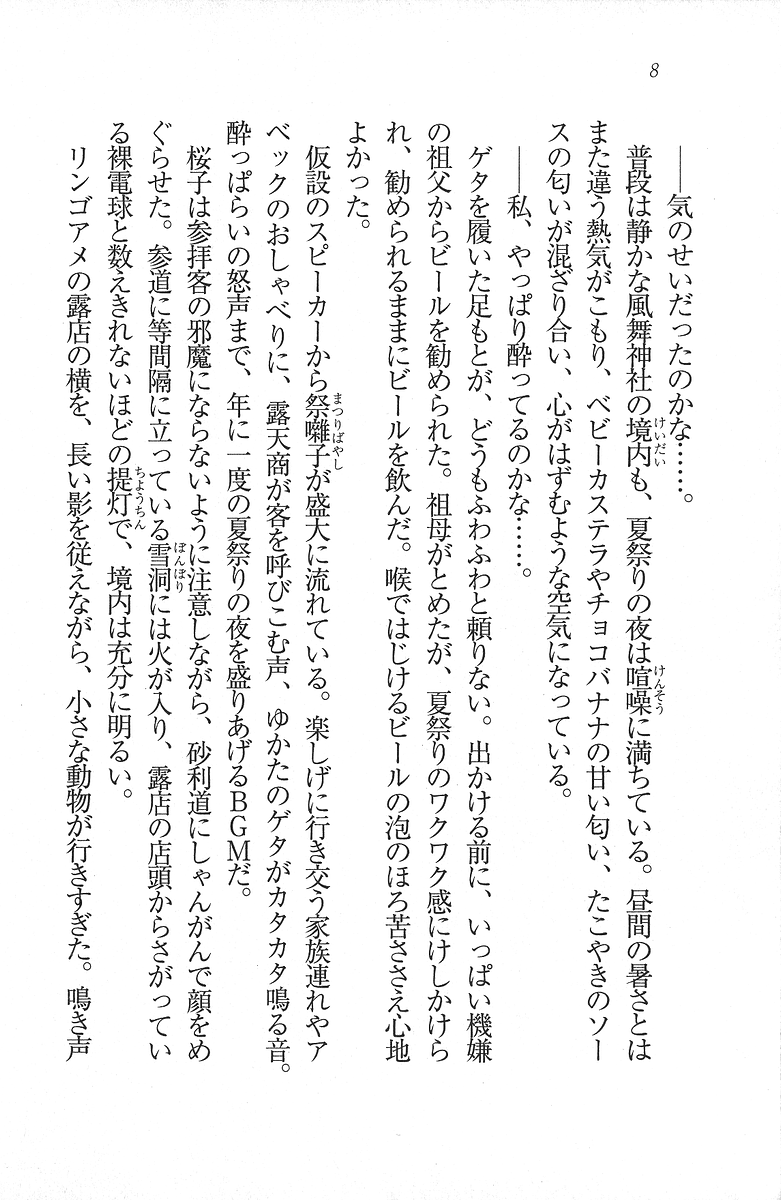 8
――気のせいだったのかな……。
普段は静かな風舞神社の境内も、夏祭りの夜は喧噪に満ちている。昼間の暑さとは
また違う熱気がこもり、ベビーカステラやチョコバナナの甘い匂い、たこやきのソー
スの匂いが混ざり合い、心がはずむような空気になっている。
――私、やっぱり酔ってるのかな……。
ゲタを履いた足もとが、どうもふわふわと頼りない。出かける前に、いっぱい機嫌
の祖父からビールを勧められた。祖母がとめたが、夏祭りのワクワク感にけしかけら
れ、勧められるままにビールを飲んだ。喉ではじけるビールの泡のほろ苦ささえ心地
よかった。
仮設のスピーカーから祭囃子が盛大に流れている。楽しげに行き交う家族連れやア
ベックのおしゃべりに、露天商が客を呼びこむ声、ゆかたのゲタがカタカタ鳴る音。
酔っぱらいの怒声まで、年に一度の夏祭りの夜を盛りあげるＢＧＭだ。
桜子は参拝客の邪魔にならないように注意しながら、砂利道にしゃがんで顔をめ
ぐらせた。参道に等間隔に立っている雪洞には火が入り、露店の店頭からさがってい
る裸電球と数えきれないほどの提灯で、境内は充分に明るい。
リンゴアメの露店の横を、長い影を従えながら、小さな動物が行きすぎた。鳴き声
けいだい
けんそう
まつりばやし
ぼんぼり
ちようちん